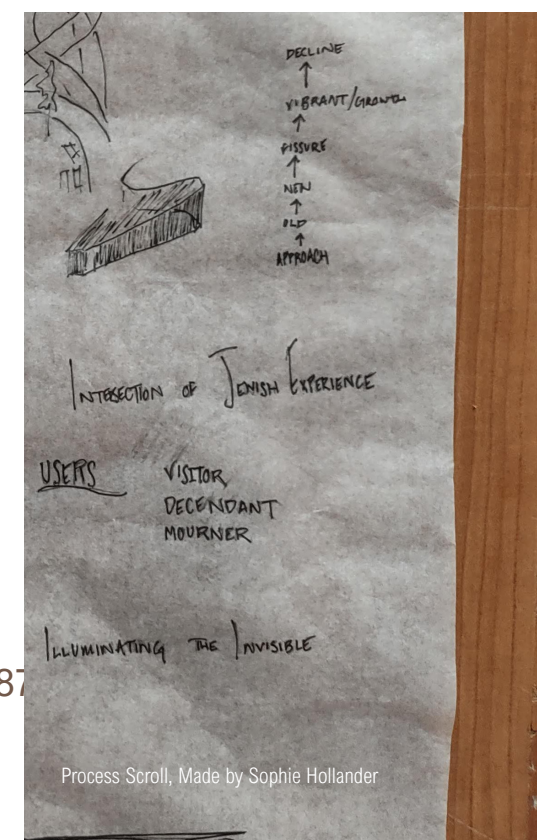 DECLINE
↑
VIBRANT/GROWTH
↑
FISSURE
↑
NEW
↑
OLD
↑
APPROACH
INTESECTION OF JEWISH EXPERIENCE
USERS
VISITOR
DECENDANT
MOURNER
ILLUMINATING THE INVISIBLE
87
Process Scroll, Made by Sophie Hollander